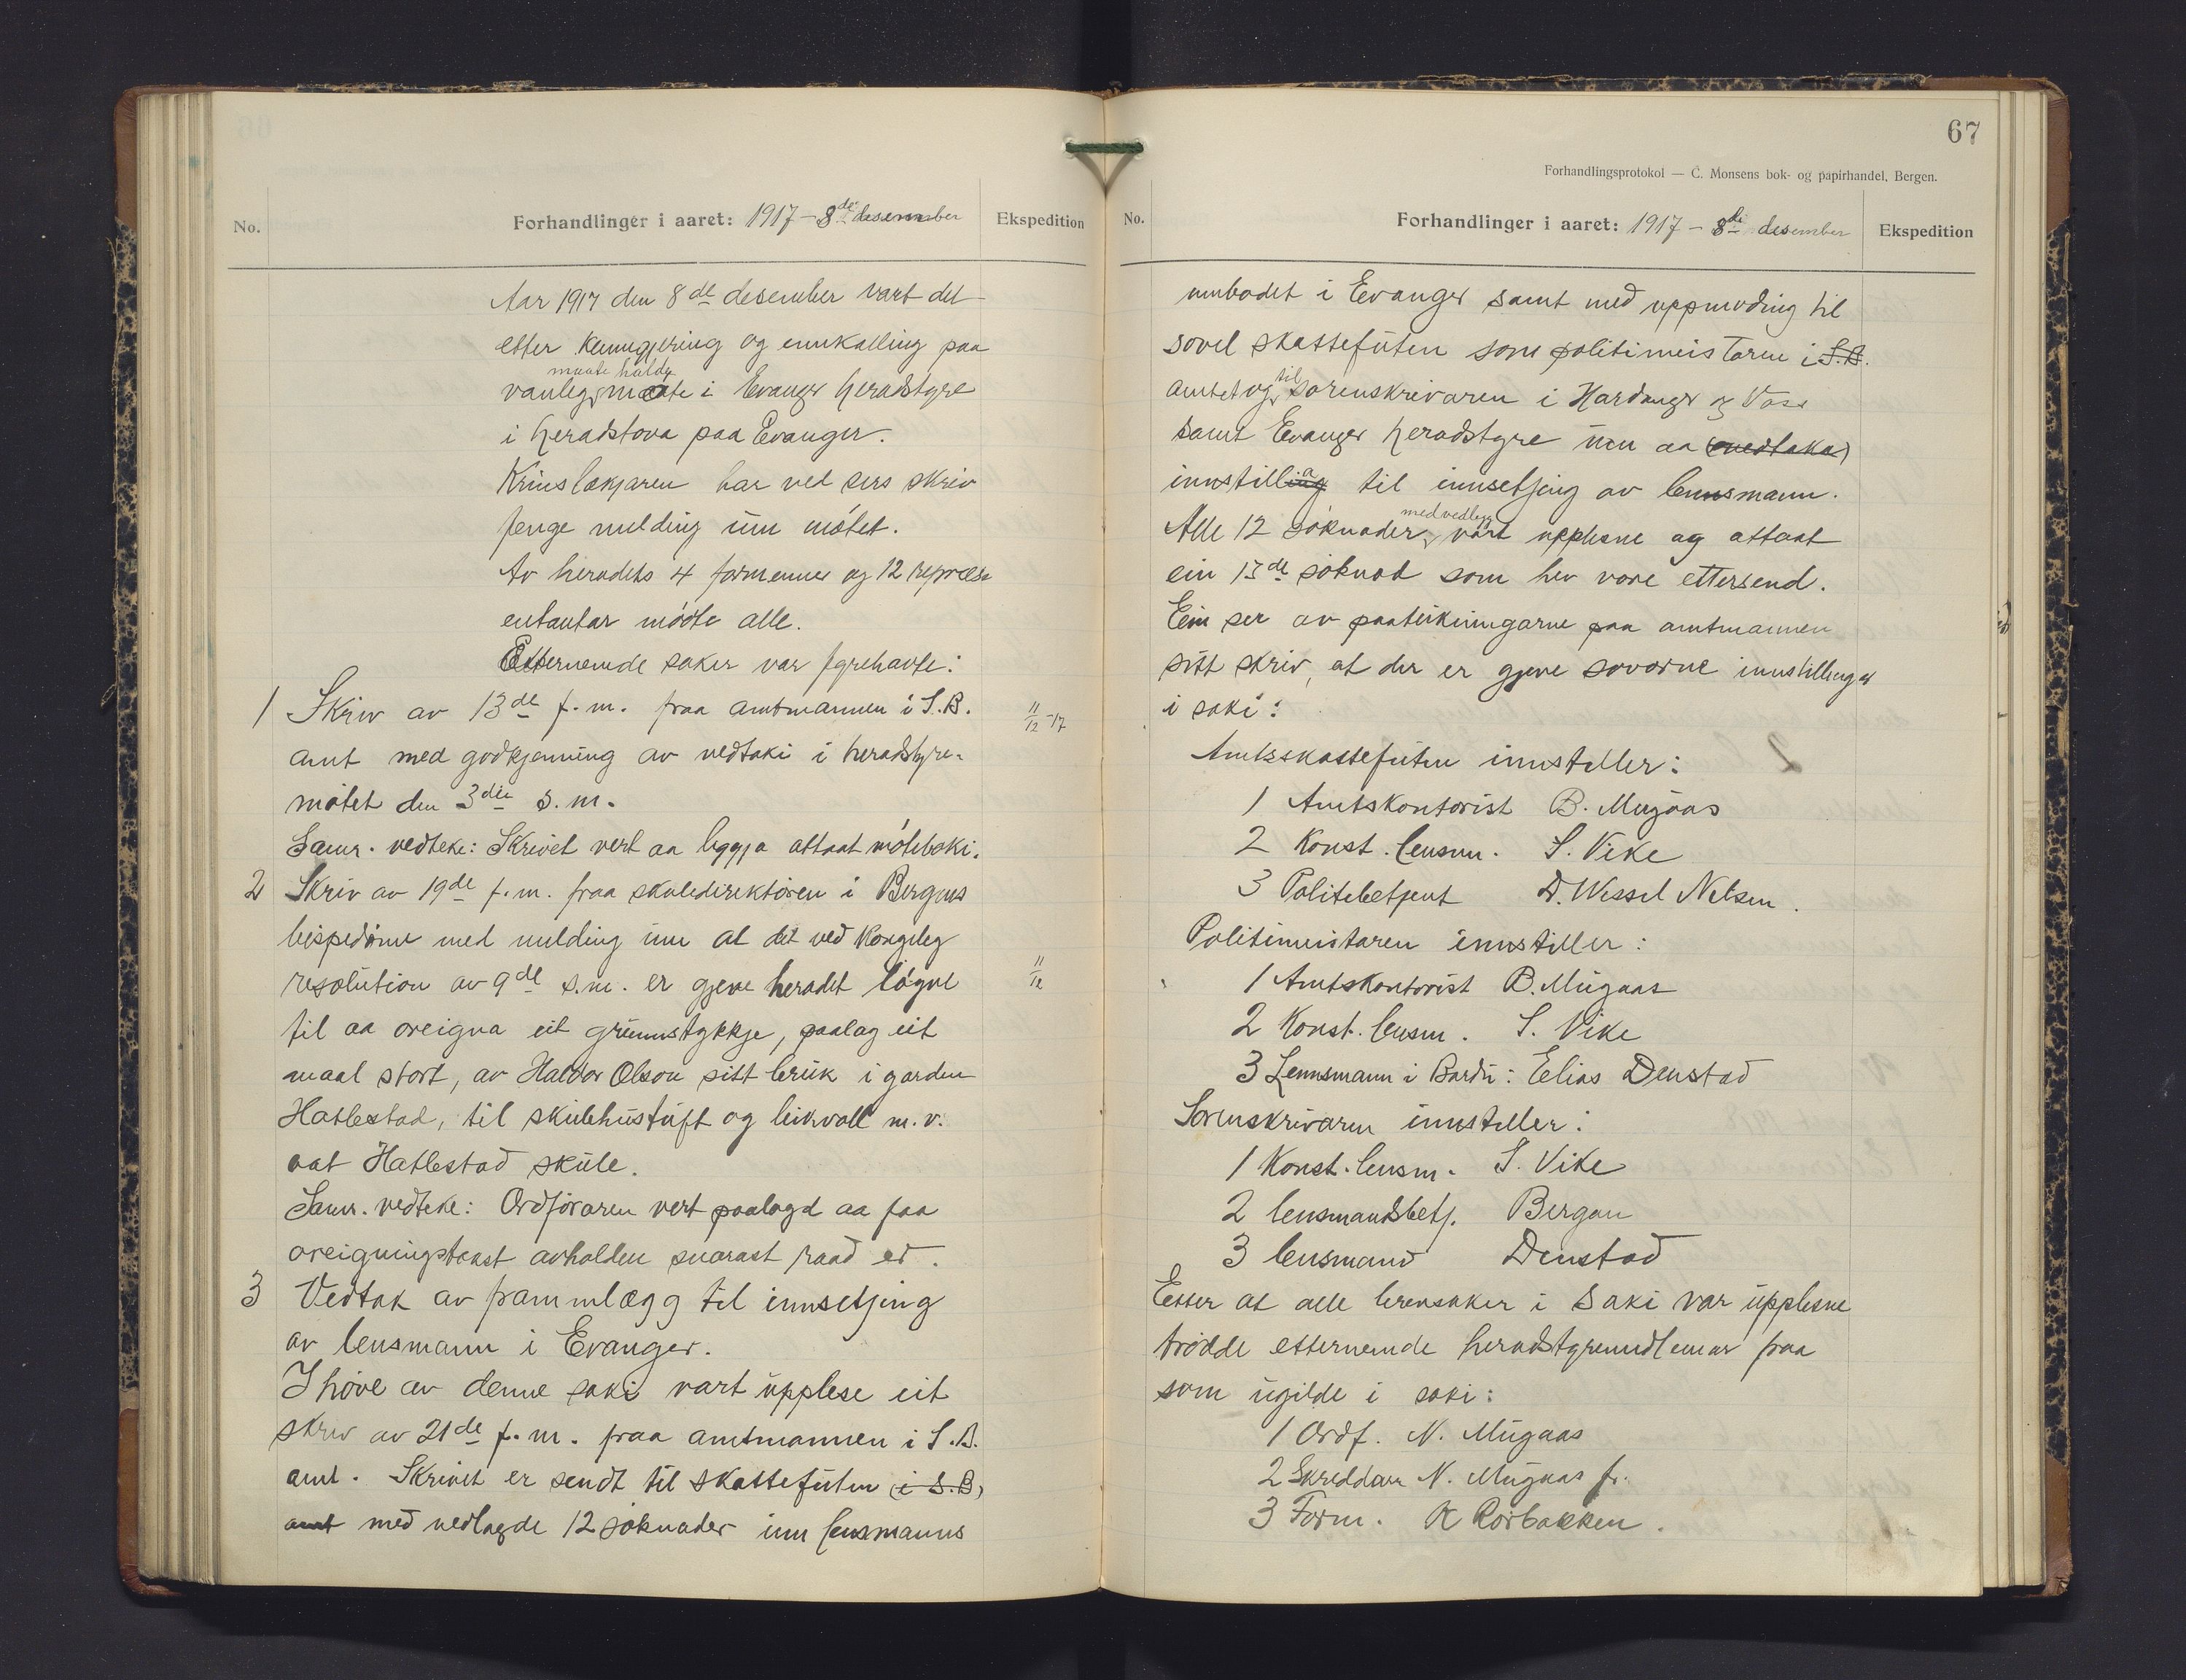 No.
Forhandlinger i aaret: 1917 - 8de desember
Ekspedition
Aar 1917 den 8de desember vart det
etter kunngjering og innkalling paa
maate haldt
vanleg møte i Evanger heradstyre
i heradstova paa Evanger.
Krinslækjaren har ved sers skriv
fenge melding um møtet.
Av heradets 4 formenner og 12 repræs-
entantar møtte alle.
Etternemde saker var fyrehavte:
1 Skriv av 13de f.m. fraa amtmannen i S.B.
11/12-17
amt med godkjenning av vedtaki i heradstyre-
møtet den 3die s.m.
Samr. vedteke: Skrivet vert aa leggja attaat møteboki.
2 Skriv av 19de f.m. fraa skuledirektøren i Bergens
bispedøme med melding um at det ved Kongeleg
resolution av 9de s.m. er gjeve heradet løgve
11/12
til aa oreigna eit grunnstykkje, paalag eit
maal stort, av Haldor Olson sitt bruk i garden
Hatlestad, til skulehustuft og leikvoll m.v.
aat Hatlestad skule.
Samr. vedteke: Ordføraren vert paalagd aa faa
oreigningstakst avhalden snarast raad er.
3 Vedtak av frammlegg til innsetjing
av lensmann i Evanger.
I høve av denne saki vart upplese eit
skriv av 21de f.m. fraa amtmannen i S.B.
amt. Skrivet er sendt til skattefuten (i S.B)
amt med vedlagde 12 søknader um lensmanns
67
Forhandlingsprotokol — C. Monsens bok- og papirhandel, Bergen.
No.
Forhandlinger i aaret: 1917 - 8de desember
Ekspedition
umbodet i Evanger samt med uppmoding til
sovel skattefuten som politimeistaren i S.B.
amtet og til sorenskrivaren i Hardanger og Voss
samt Evanger heradstyre um aa (vedtaka)
innstilling a til innsetjing av lennsmann.
med vedlegg
Alle 12 søknader vart upplesne og attaat
ein 13de søknad som hev vore ettersend.
Ein ser av paateikningarne paa amtmannen
sitt skriv, at der er gjeve sovorne innstillingar
i saki:
Amtsskattefuten innstiller:
1 Amtskontorist B. Mugaas
2 Konst. lensm. S. Vike
3 Politebetjent D. Wessel Nelsen.
Politimeistaren innstiller:
1 Amtskontorist B. Mugaas
2 Konst. lensm. S. Vike
3 Lennsmann i Bardu: Elias Denstad
Sorenskrivaren innstiller:
1 Konst. lensm. S. Vike
2 lensmandsbetj. Bergan
3 lensmand Denstad
Etter at alle brevsaker i saki var upplesne
trødde etternemde heradstyremedlemar fraa
som ugilde i saki:
1 Ordf. N. Mugaas
2 Skreddar N. Mugaas jr.
3 Form. K Rørbakken.